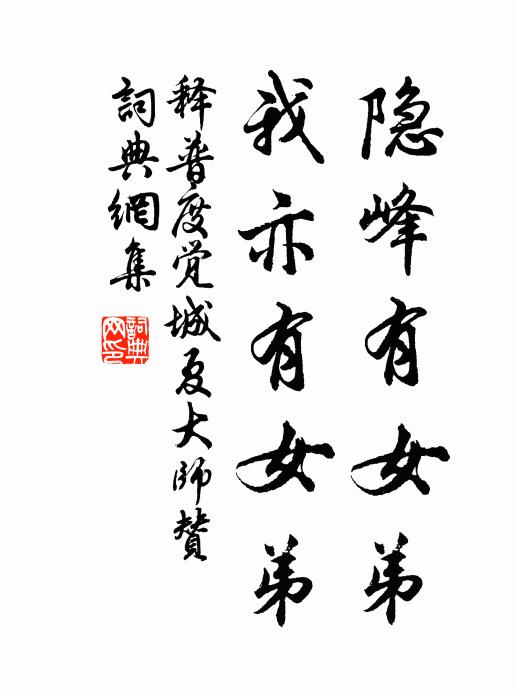 隐峰有女弟
我亦有女弟
释普度觉城夏大师赞
詞典網集
詞典
网印